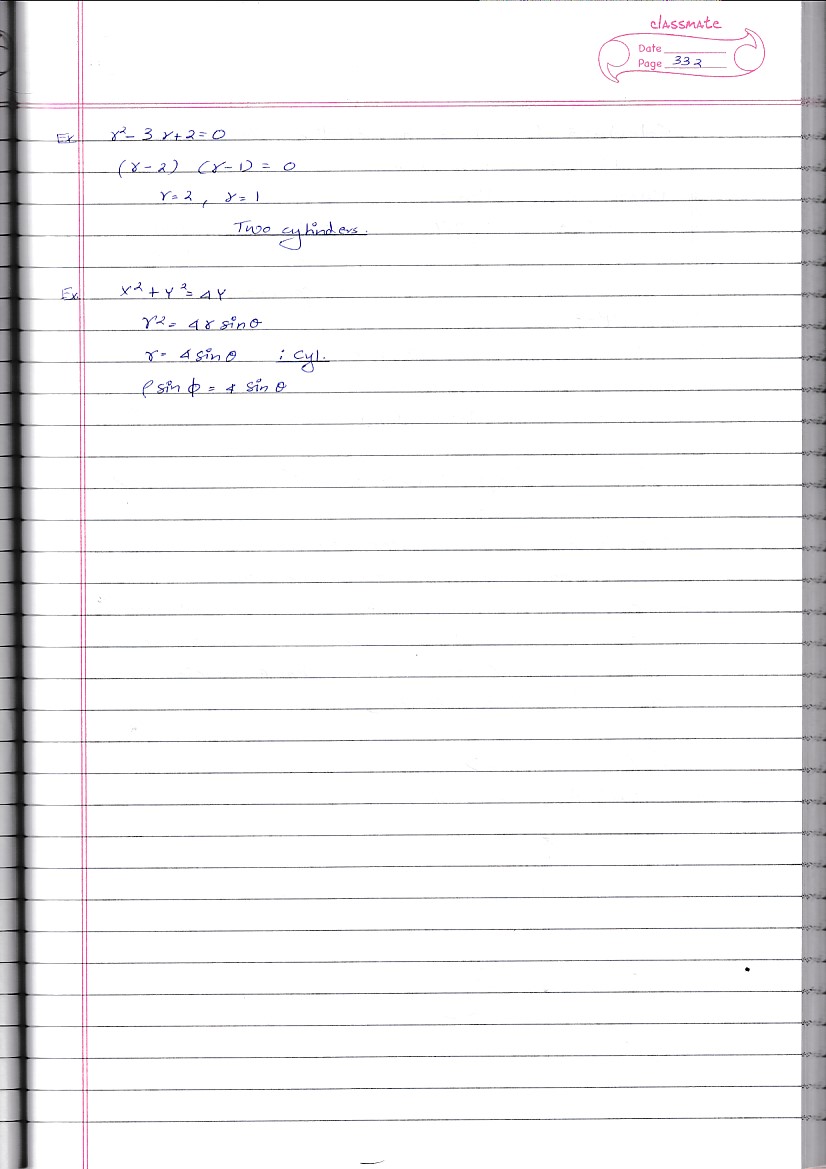 classmate
Date
Page 332
Ex. r² - 3r + 2 = 0
(r - 2) (r - 1) = 0
r = 2 , r = 1
Two cylinders.
Ex. x² + y² = 4y
r² = 4r sin θ
r = 4 sin θ : cyl.
ρ sin φ = 4 sin θ